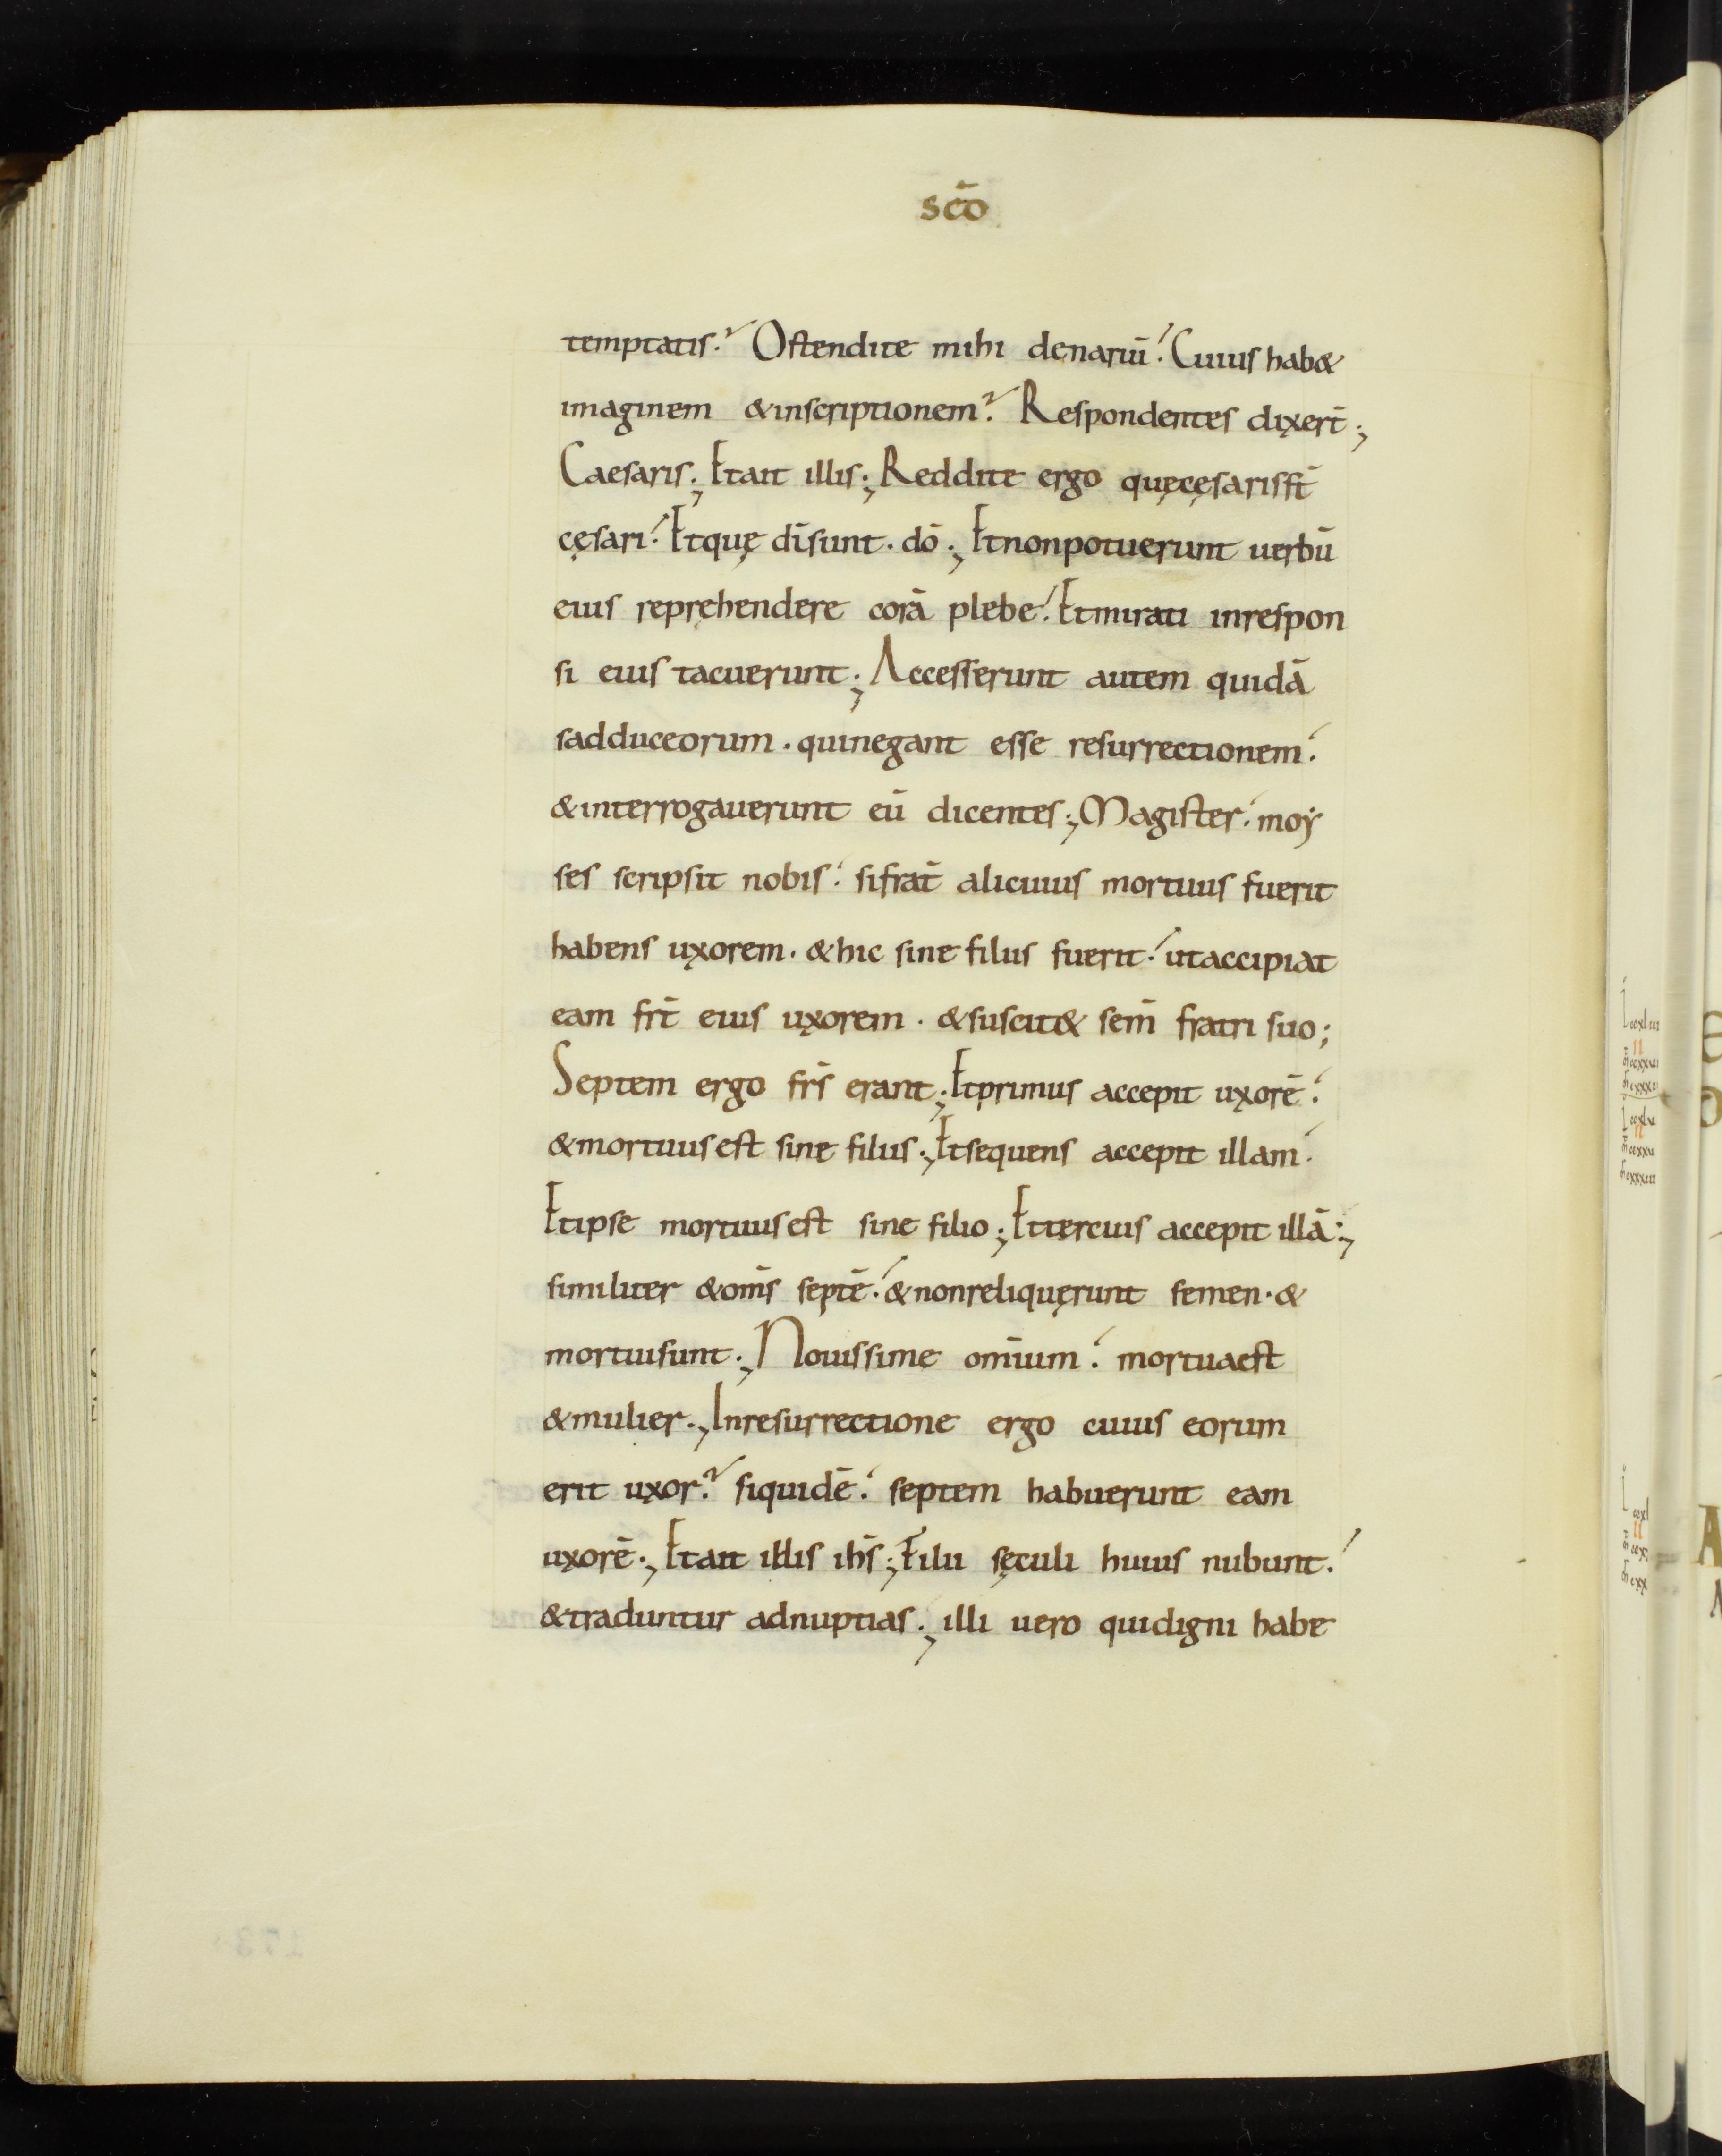 sc̄o
temptatis? Ostendite mihi denariū! Cuius hab&
imaginem &inscriptionem? Respondentes dixer̄t;
Caesaris; Etait illis; Reddite ergo quęcęsarissn̄t
cęsari! Etquę dīsunt. dō; Etnonpotuerunt uerbū
eius repręhendere corā plebe! Etmirati inrespon
si eius tacuerunt; Accesserunt autem quidā
sadduceorum. quinegant esse resurrectionem!
&interrogauerunt eū dicentes; Magister! moẏ
ses scripsit nobis! sifrat̄ alicuius mortuus fuerit
habens uxorem. &hic sine filiis fuerit! utaccipiat
eam fr̄t eius uxorem. &suscit& sem̄ fratri suo;
Septem ergo fr̄s erant; Etprimus accepit uxorē!
&mortuusest sine filiis; Etsequens accepit illam!
Etipse mortuusest sine filio; Ettercius accepit illā;
similiter &om̄s septē! &nonreliquęrunt semen. &
mortuisunt; Nouissime om̄ium! mortuaest
&mulier; Inresurrectione ergo cuius eorum
erit uxor? siquidē! septem habuerunt eam
uxorē; Etait illis ih̄s; Filii sęculi huius nubunt!
&traduntur adnuptias; illi uero quidigni habe